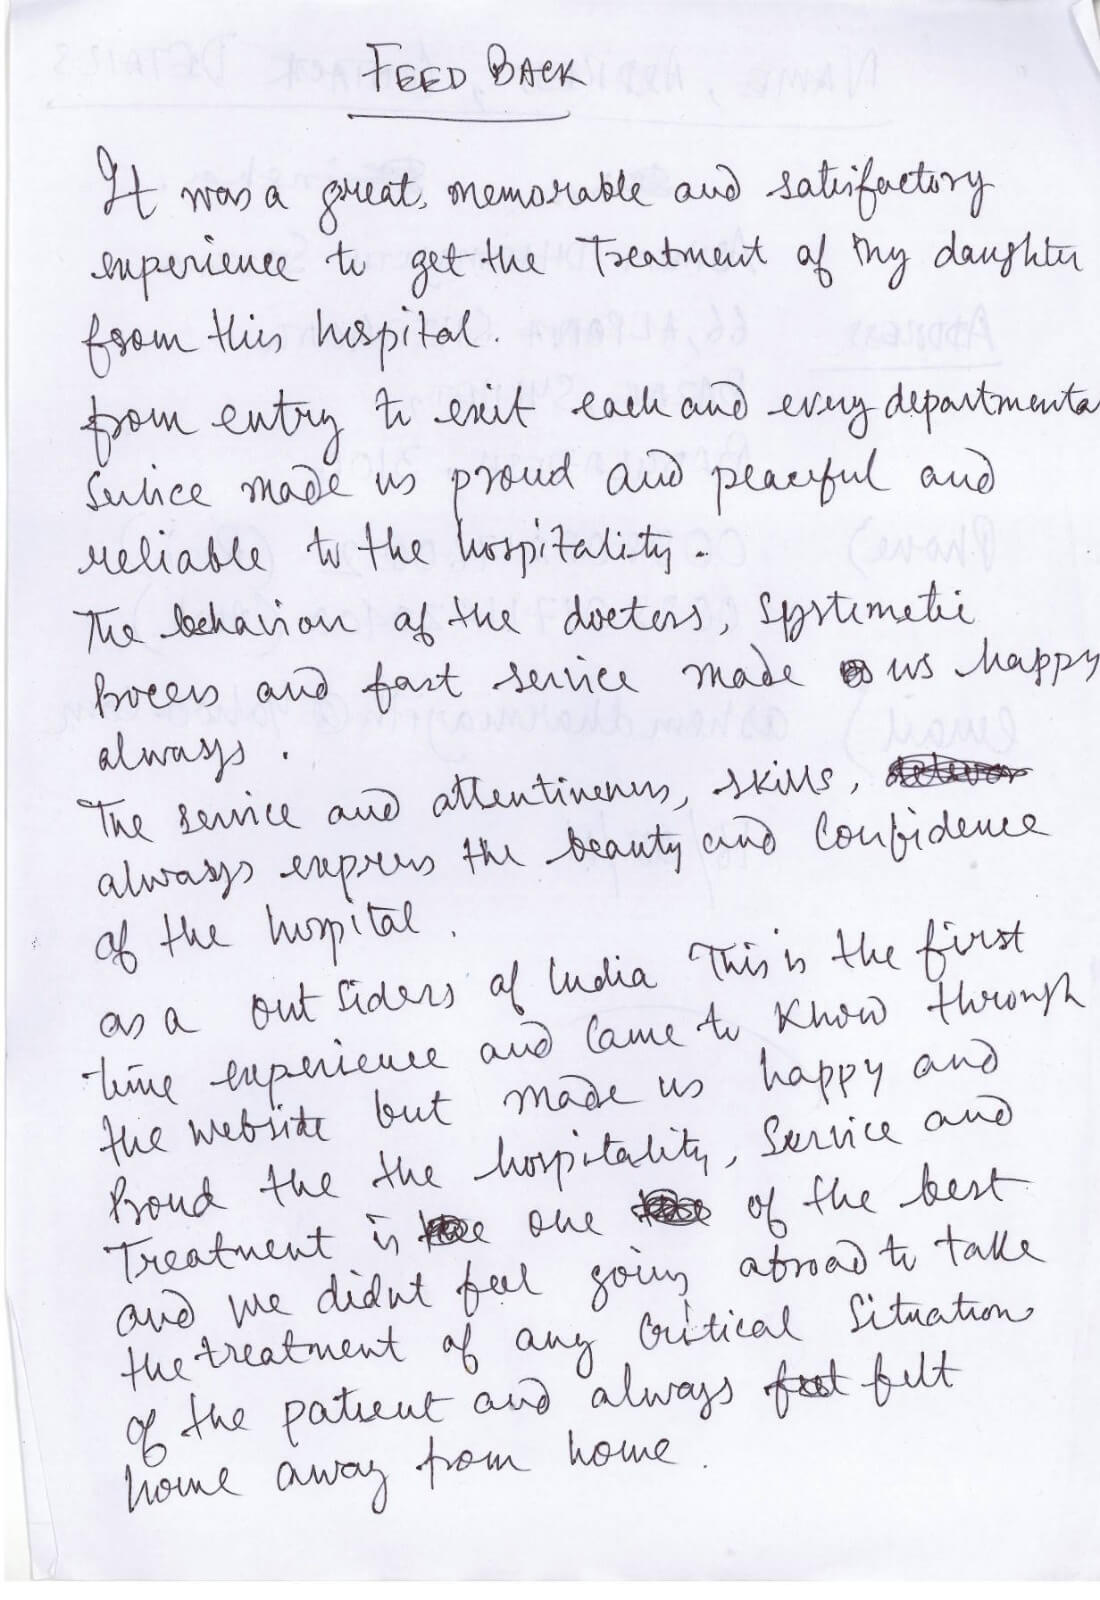 FEED BACK
It was a great, memorable and satisfactory
experience to get the Treatment of my daughter
from this hospital.
from entry to exit each and every departmenta
Service made us proud and peaceful and
reliable to the hospitality.
The behavior of the doctors, Systimetic
Process and fast service made us happy
always.
The service and attentiveness, skills,
always express the beauty and Confidence
of the hospital.
as a out siders of India This is the first
time experience and Came to Know through
the website but made us happy and
Proud the the hospitality, Service and
Treatment is one of the best
and we didnt feel going abroad to take
the treatment of any Critical Situation
of the patient and always felt
home away from home.